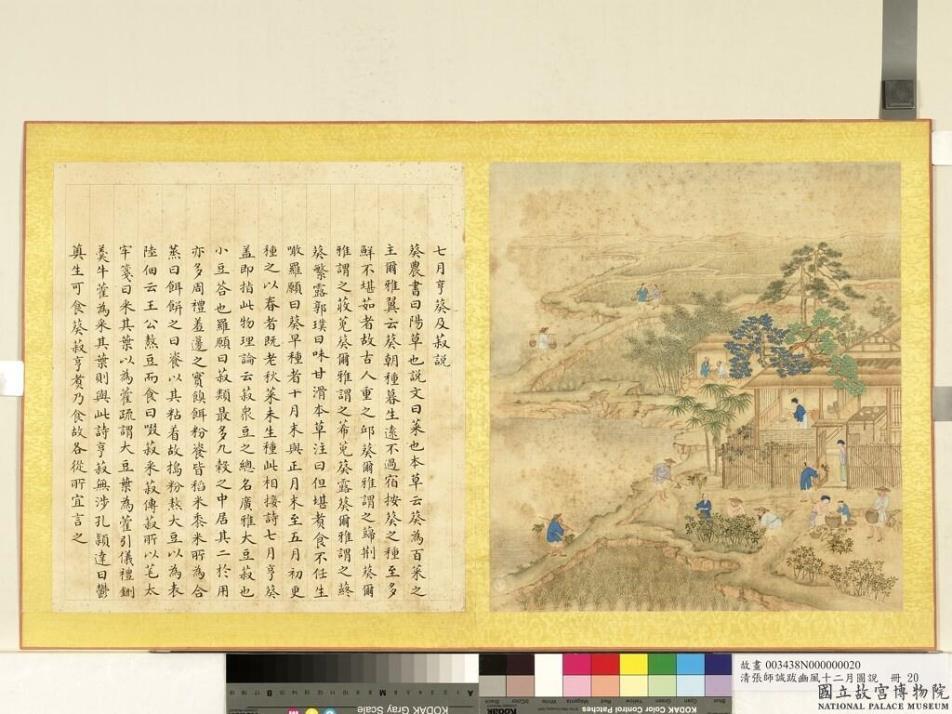 七月亨葵及菽説
葵農書曰陽草也説文曰菜也本草云葵為百菜之
主爾雅翼云葵朝種暮生遠不過宿按葵之種至多
鮮不堪茹者故古人重之邱葵爾雅謂之蹄荆葵爾
雅謂之荍菟葵爾雅謂之莃菟葵露葵爾雅謂之蔠
葵蘩露郭璞曰味甘滑本草注曰但堪煑食不任生
噉羅願曰葵早種者十月末與正月末至五月初更
種之以春者既老秋菜未生種此相接詩七月亨葵
盖即指此物理論云菽衆豆之總名廣雅大豆菽也
小豆荅也羅願曰菽類最多九穀之中居其二於用
亦多周禮羞籩之實餌粉餈皆稻米黍米所為合
蒸曰餌餅之曰餈以其粘着故搗粉熬大豆以為表
陸佃云王公熬豆而食曰啜菽采菽傳菽所以芼太
牢箋曰采其葉以為藿疏謂大豆葉為藿引儀禮鉶
羹牛藿為采其葉則與此詩亨菽無涉孔頴達曰鬱
薁生可食葵菽亨煑乃食故各從所宜言之
KODAK Gray Scale
KODAK Color Control Patches
故畫 003438N000000020
清張師誠跋豳風十二月圖說 冊 20
國立故宮博物院
NATIONAL PALACE MUSEUM